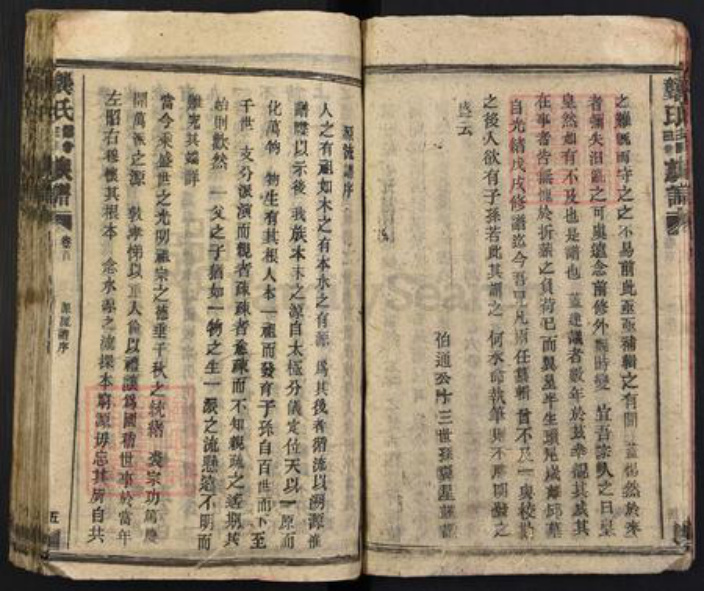 之難既而守之之不易前此亟亟補輯之有間蓋惕然於來
者彌失汨亂之可虞遠念前修外觀時變宜吾宗人之日呈
皇然如有不及也是譜也蓋建議者數年於茲幸觀其成其
在事者皆謡愧於折薪之負荷已而翼星半生頭尾歲
自光緒戊戌修譜迄今吾兄凡兩任纂輯曾不及一與校勘
之後人欲有子孫若此其謂之何承命執筆與不
云
伯通公十三世孫翼星謹
源流譜序
人之有祖如木之有本水之有源為其後者循流以溯源
以示後我族本木之源自太極分儀定位天以一原而
化萬物物生有其根人本一祖而發育子孫自百世而下至
千世支分派演而親者疎疎者愈疎而不知親疏之
始則歘然一父之子猶如一物之生一派之流懸遠不明而
難究其端詳
當今乘盛世之光明祖宗之德垂千秋之統緒宗功篤慶
開萬派之源敦孝悌以正人倫以禮讓為國稽世事於當年
左昭右穆懷其根本念水源之流探本窮源毋忘其所自共
龔氏
族譜
卷首
源流譜序
五
龔氏
族譜
FamilySearch